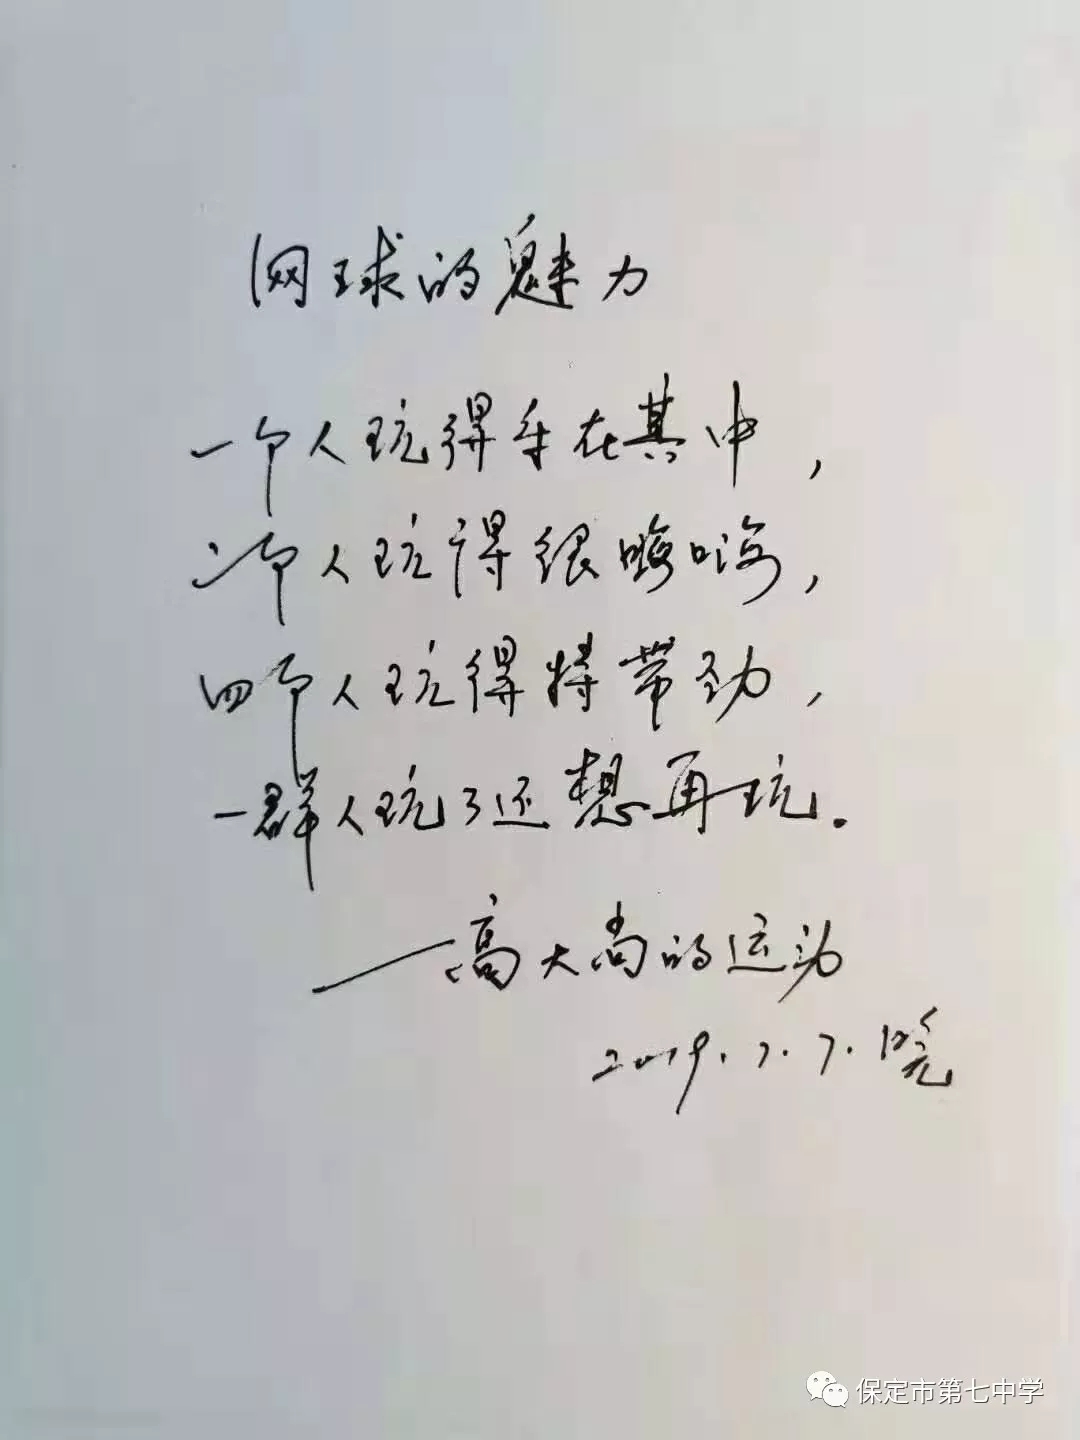 网球的魅力
一个人玩得乐在其中，
二个人玩得很嗨嗨，
四个人玩得特带劲，
一群人玩了还想再玩.
——高大尚的运动
2019.7.7.晓
保定市第七中学